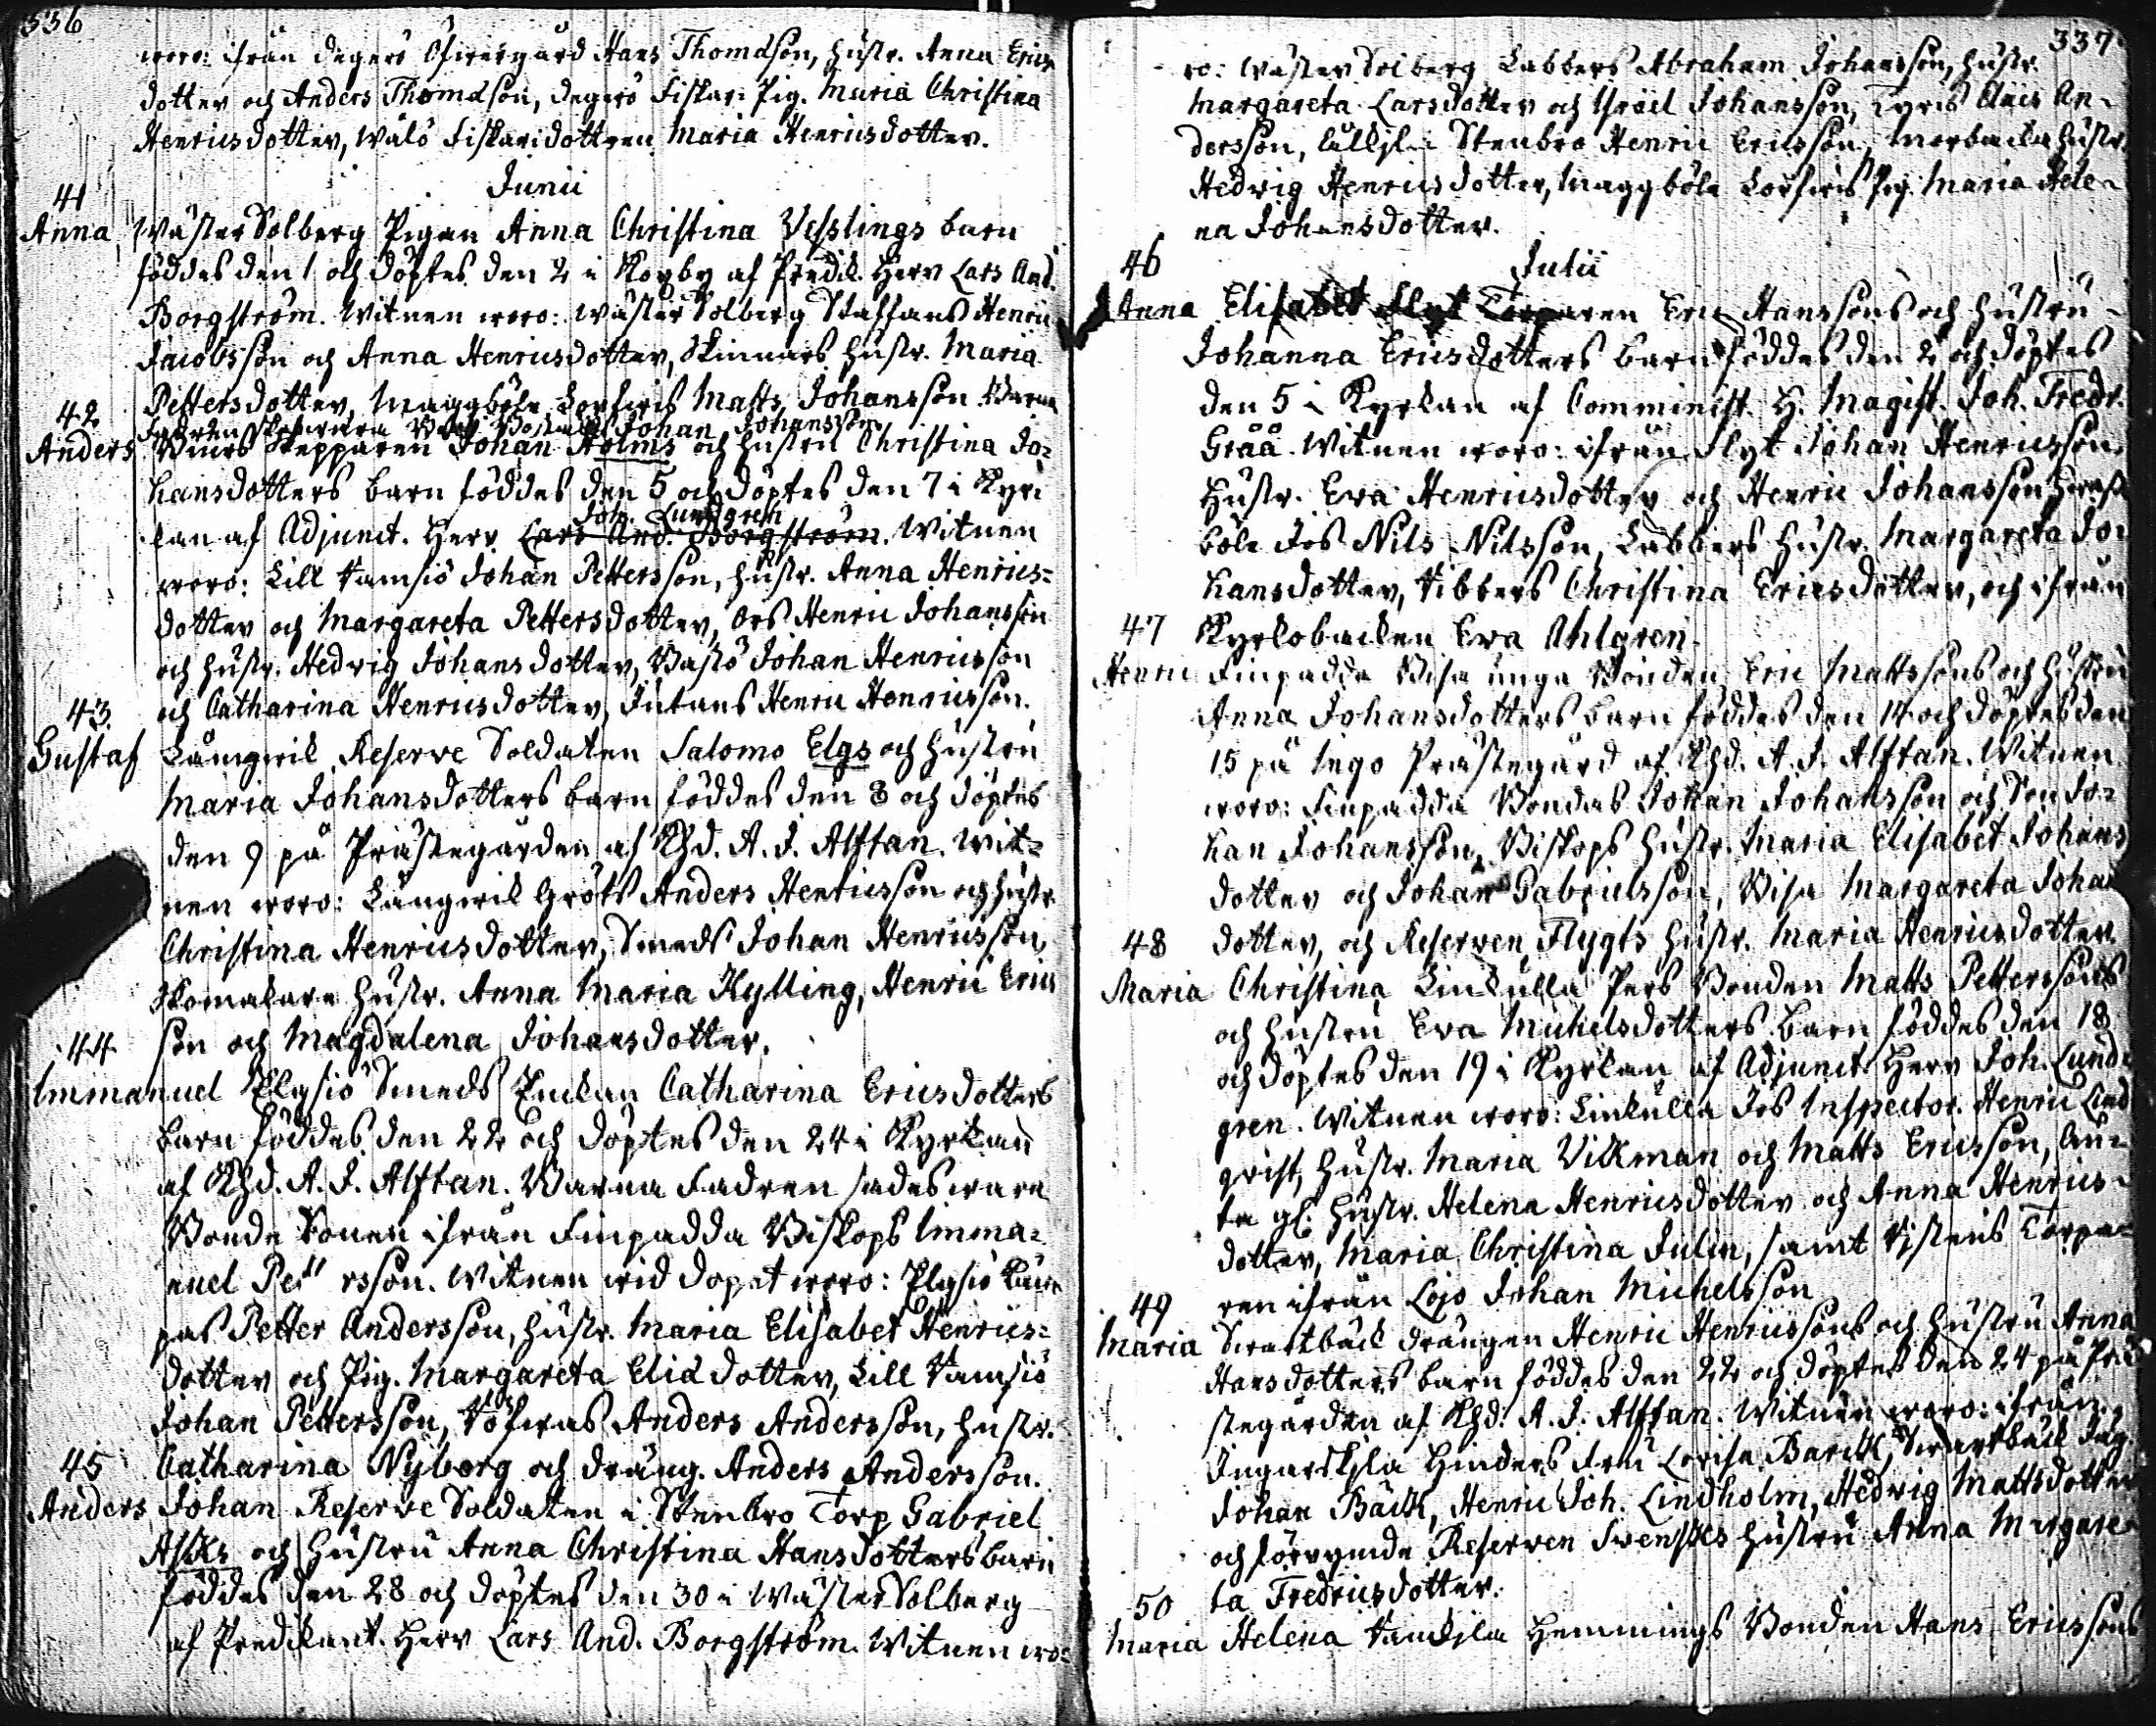 336
woro: ifrån Degerö Öfwergård Hans Thomasson, hustr. Anna Erics
dotter och Anders Thomasson, Degerö Fiskar Pig. Maria Christina
Henricsdotter, Wålö Fiskaridottren Maria Henricsdotter.
Junii
41
Anna Wäster Solberg Pigan Anna Christina Vesslings barn
föddes den 1 och döptes den 2 i Koxby af Predik. Herr Lars And.
Borgström. Witnen woro: Wäster Solberg Staffans Henric
Jacobsson och Anna Henricsdotter, Skinnars hustr. Maria
Pettersdotter, Maggböle Lorfwis Matts Johansson. Barna
Fadren Johan Johansson.
42
Anders Skepparen Johan Holms och hustru Christina Jo-
hansdotters barn föddes den 5 och döptes den 7 i Kyr-
kan af Adjunct. Herr Lars And. Borgström. Joh. Lundgren Witnen
woro: Lill Ramsiö Johan Pettersson, hustr. Anna Henrics-
dotter och Margareta Pettersdotter, Ors Henric Johansson
och hustr. Hedwig Johansdotter, Wasö Johan Henricsson
och Catharina Henricsdotter, Jutans Henric Henricsson.
43.
Gustaf Långwik Reserve Soldaten Salomo Elgs och hustru
Maria Johansdotters barn föddes den 8 och döptes
den 9 på Prästegården af Khd. A. J. Alftan. Wit-
nen woro: Långwik Gröts Anders Henricsson och hustr.
Christina Henricsdotter, Smeds Johan Henricsson,
Skomakare hustr. Anna Maria Kylling, Henric Erics
son och Magdalena Johansdotter.
44
Immanuel Elgsiö Smeds Enkan Catharina Ericsdotters
barn föddes den 22 och döptes den 24 i Kyrkan
af Khd. A. J. Alftan. Barna Fadren sades wara
Bonde Sonen ifrån Finpadda Biskops Imma-
nuel Pettersson. Witnen wid dopet woro: Elgsiö
Petter Andersson, hustr. Maria Elisabet Henrics-
dotter och Pig. Margareta Eliædotter, Lill Ramsiö
Johan Pettersson, Töfwas Anders Andersson, hustr.
Catharina Nyborg och dräng. Anders Andersson.
45
Anders Johan Reserve Soldaten i Stenbro Torp Gabriel
Asks och hustru Anna Christina Hansdotters barn
föddes den 28 och döptes den 30 i Wäster Solberg
af Predikant. Herr Lars And. Borgström. Witnen wo-
337
ro: Wäster Solberg Labbers Abraham Johansson, hustr.
Margareta Larsdotter och Israel Johansson, Tyris Claes An-
dersson, Stenbro Henric Ericsson, Morbacka hustr.
Hedwig Henricsdotter, Maggböle Lorfwis Pig. Maria Hele-
na Johansdotter.
Julii
46
Anna Elisabet Flyt Torparen Eric Hanssons och hustru
Johanna Ericsdotters barn föddes den 2 och döptes
den 5 i Kyrkan af Comminist. H. Magist. Joh. Fredr.
Gråå. Witnen woro: ifrån Flyt Johan Henricsson,
hustr. Ewa Henricsdotter och Henric Johansson
böle Jos Nils Nilsson, Labbers hustr. Margareta Jo-
hansdotter, Ribbers Christina Ericsdotter, och ifrån
Kyrkobacken Ewa Ahlgren.
47
Henric Finpadda Wisa unga Bonden Eric Mattssons och hustru
Anna Johansdotters barn föddes den 14 och döptes den
15 på Ingo Prästegård af Khd. A. J. Alftan. Witnen
woro: Finpadda Bondas Johan Johansson och Son Jo-
han Johansson, Biskops hustr. Maria Elisabet Johans
dotter och Johan Gabrielsson, Wisa Margareta Johans
dotter, och Reserven Flygts hustr. Maria Henricsdotter.
48
Maria Christina Linkulla Pers Bonden Matts Petterssons
och hustru Eva Michelsdotters barn föddes den 18
och döptes den 19 i Kyrkan af Adjunct. Herr Joh. Lund-
gren. Witnen woro: Linkulla Jos Inspector. Henric Lind
qvist, hustr. Maria Vikman och Matts Ericsson,
gl. hustr. Helena Henricsdotter och Anna Henrics-
dotter, Maria Christina Julin, samt Torpa-
ren ifrån Lojo Johan Michelsson
49
Maria Swartbäck Drängen Henric Henricssons och hustru Anna
Hansdotters barn föddes den 22 och döptes den 24 på Prä
stegården af Khd. A. J. Alftan. Witnen woro: ifrån
Ingarskila Hinders Fru Lovisa Barck, Swartbäck
Johan Bäck, Henric Joh. Lindholm, Hedwig Mattsdotter
och Reserven Swenskes hustru Anna Margare-
ta Fredricsdotter.
50
Maria Helena Hemmings Bonden Hans Ericssons